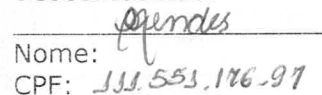 Nome:
CPF: 111.551.176-97